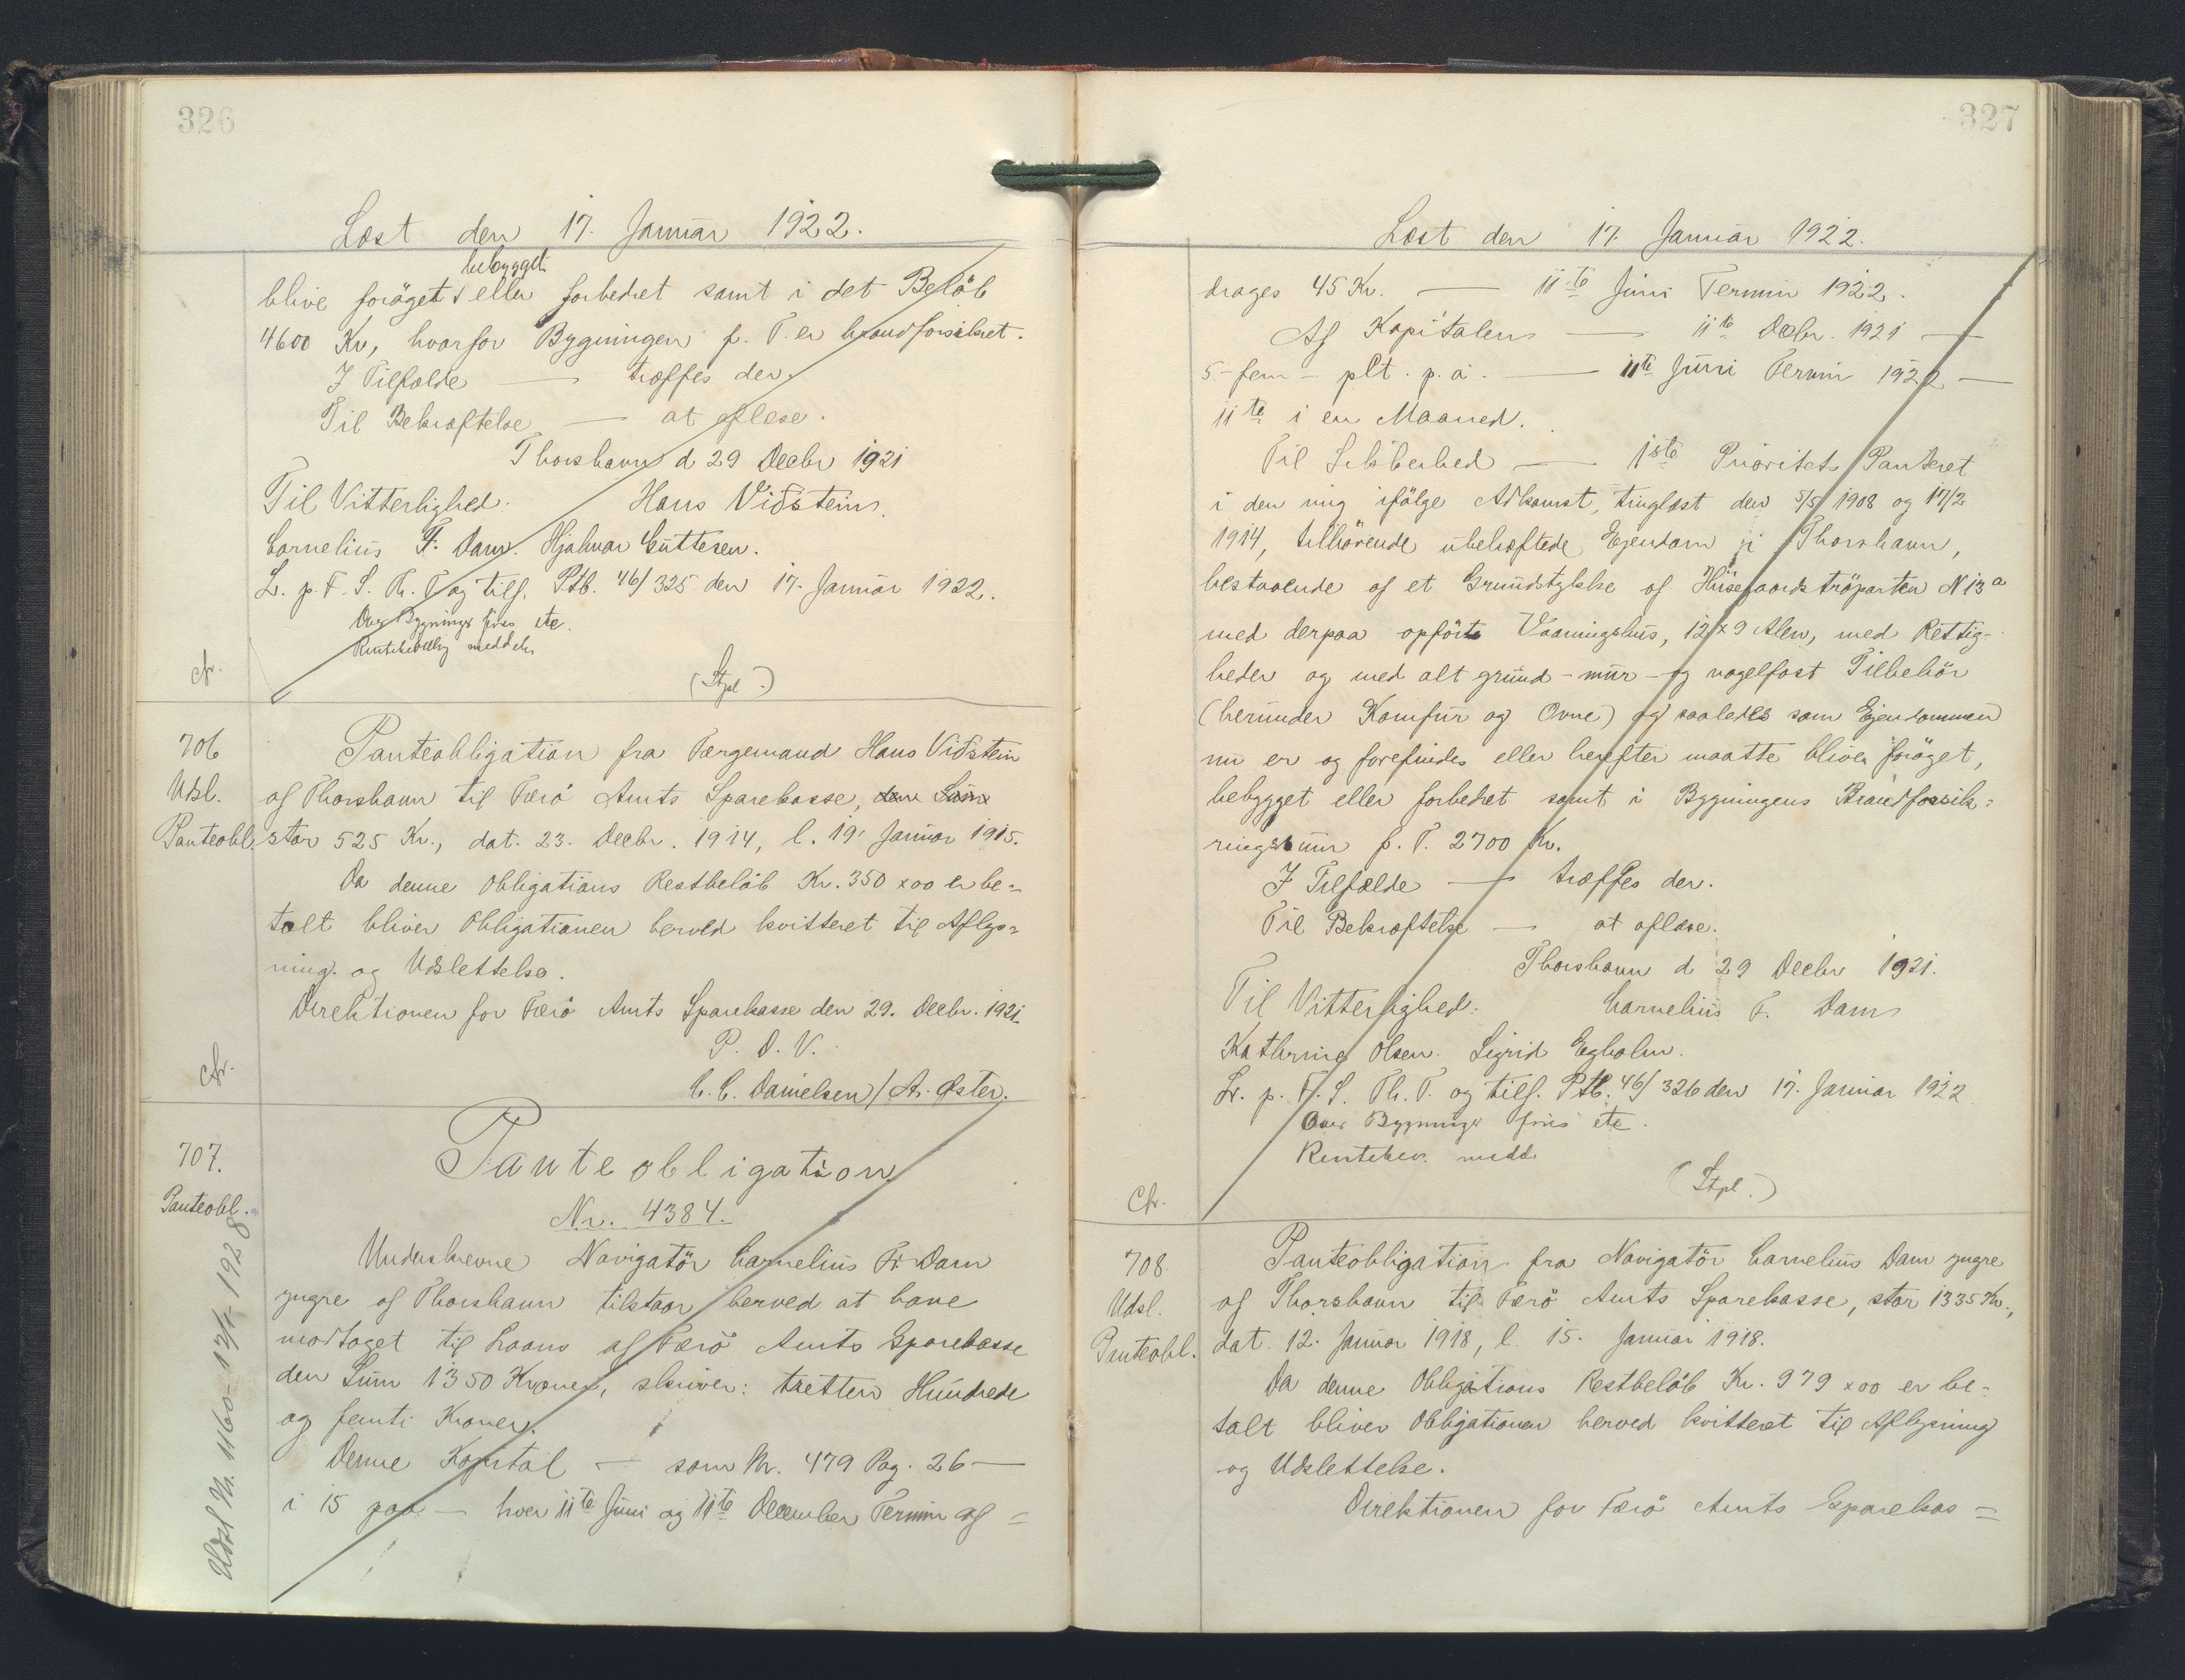 326
Læst den 17. Januar 1922.
bebygget
blive forøget eller forbedret samt i det Beløb
4600 Kr, hvorfor Bygningen p. T. er brandforsikret.
I Tilfælde — træffes der.
Til Bekræftelse — at aflæse.
Thorshavn d 29 Decbr 1921
Til Vitterlighed. Hans Viðstein.
Cornelius F. Dam. Hjalmar Guttesen.
L. p. F. S. Th. T og tilf. Ptb. 46/325 den 17. Januar 1922.
Ov. Bygnings fors etc.
Rentebevillg meddelt
Cfr.
(Stpl.)
706
Udsl.
Panteobl.
Panteobligation fra Færgemand Hans Viðstein
af Thorshavn til Færø Amts Sparekasse, den Sum
stor 525 Kr., dat. 23. Decbr. 1914, l. 19. Januar 1915.
Da denne Obligations Restbeløb Kr. 350 x 00 er be=
talt bliver Obligationen herved kvitteret til Aflys=
ning og Udslettelse.
Direktionen for Færø Amts Sparekasse den 29. Decbr. 1921.
P. D. V.
C. C. Danielsen / A. Øster.
Cfr.
707.
Panteobl.
Udsl Nr. 1160 - 12/1 1928
Panteobligation
Nr. 4384.
Underskrevne Navigatør Cornelius Fr. Dam
yngre af Thorshavn tilstaar herved at have
modtaget til Laans af Færø Amts Sparekasse
den Sum 1350 Kroner, skriver: tretten Hundrede
og femti Kroner.
Denne Kapital — som Nr. 479 Pag. 26 —
i 15 paa — hver 11te Juni og 11te December Termin af=
327
Læst den 17. Januar 1922.
drages 45 Kr. — 11te Juni Termin 1922.
Af Kapitalen — 11te Decbr. 1921 —
5 - fem - pCt. p. a. — 11te Juni Termin 1922 —
11te i en Maaned.
Til Sikkerhed — 1ste Prioritets Panteret
i den mig ifølge Adkomst, tinglæst den 5/5 1908 og 17/2
1914, tilhørende ubehæftede Ejendom i Thorshavn,
bestaaende af et Grundstykke af Husegaards trøparten N 13 a
med derpaa opførte Vaaningshus, 12 x 9 Alen, med Rettig-
heder og med alt grund - mur - og nagelfast Tilbehør
(herunder Komfur og Ovne) og saaledes som Ejendommen
nu er og forefindes eller herefter maatte blive forøget,
bebygget eller forbedret samt i Bygningens Brandforsik=
ringssum p. T. 2700 Kr.
I Tilfælde — træffes der.
Til Bekræftelse — at aflæse.
Thorshavn d 29 Decbr 1921.
Til Vitterlighed. Cornelius F. Dam
Kathrine Olsen. Sigrid Egholm.
L. p. F. S. Th. T. og tilf. Ptb. 46/326 den 17. Januar 1922
Over Bygnings fors etc.
Rentebev. medd.
Cfr.
(Stpl.)
708.
Udsl.
Panteobl.
Panteobligation fra Navigatør Cornelius Dam yngre
af Thorshavn til Færø Amts Sparekasse, stor 1335 Kr.,
dat. 12. Januar 1918, l. 15. Januar 1918.
Da denne Obligations Restbeløb Kr. 979 x 00 er be=
talt bliver Obligationen herved kvitteret til Aflysning
og Udslettelse.
Direktionen for Færø Amts Sparekas=